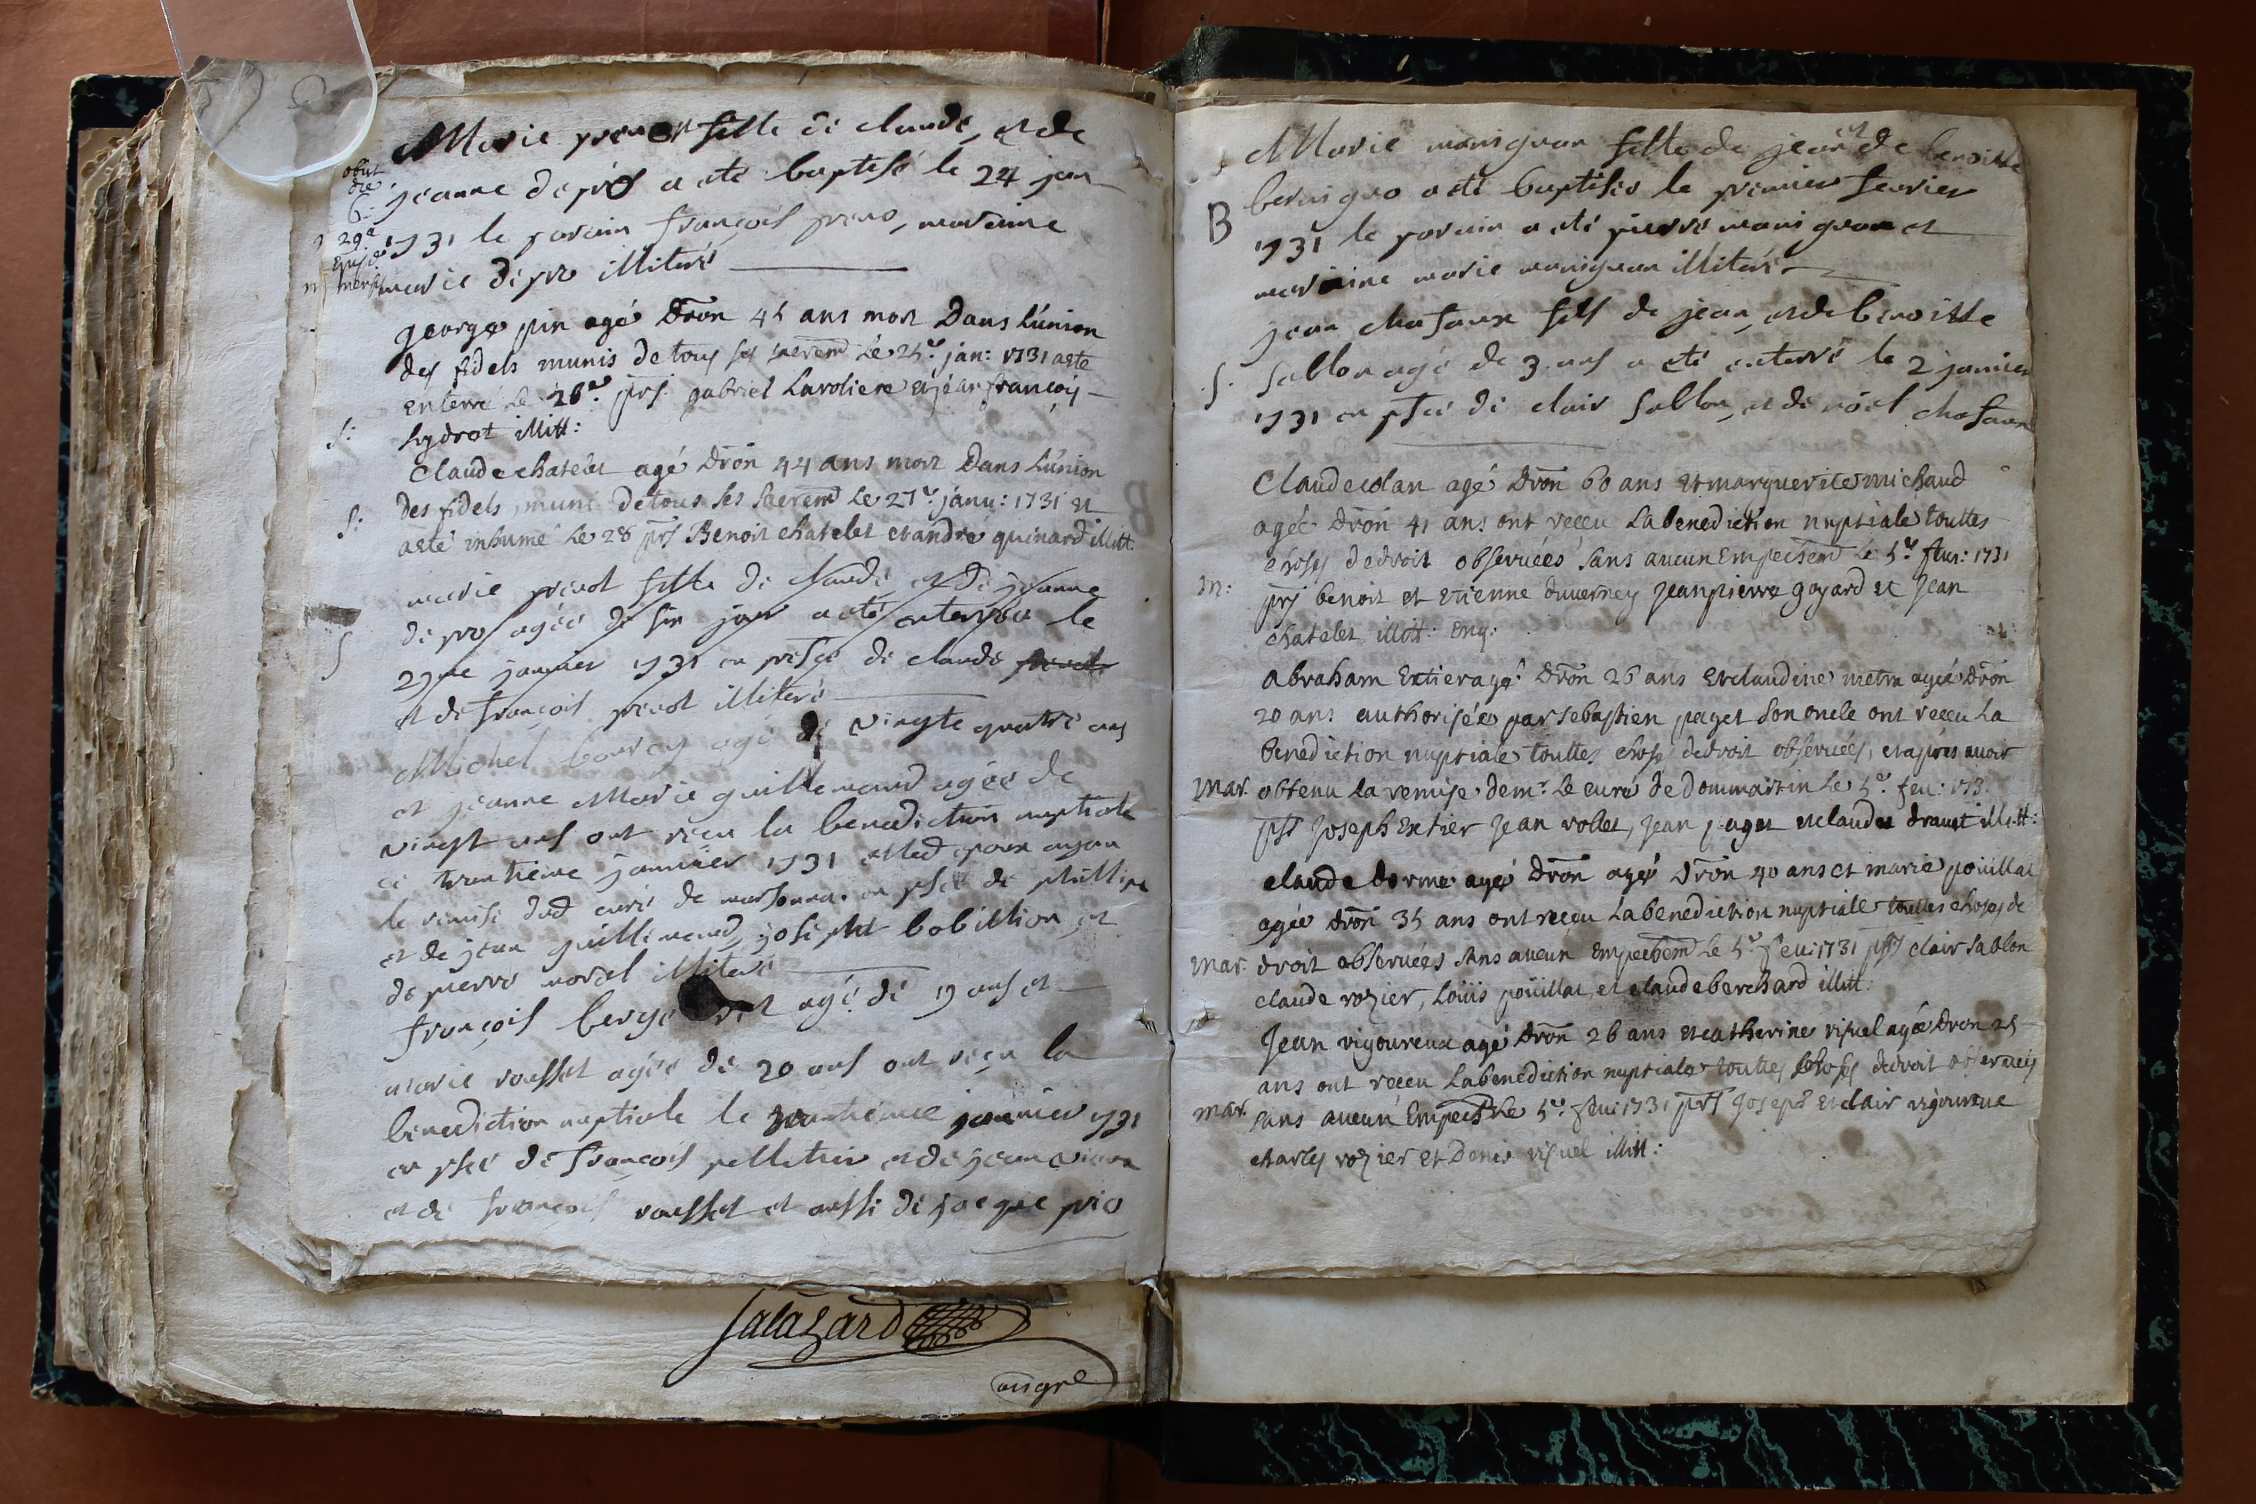 Marie prevot fille de claude, et de
obiit
die
6:
jeanne depros a eté baptisé le 24 jan
29a
1731 le parain françois prevo, maraine
mensis
marie depro illiteré
george pin agé dron 45 ans mort Dans l'union
des fidels munis de tous ses sacremt Le 25e jan: 1731 a eté
enterré Le 26e prs. gabriel Laroliere et jean françois
S:
Sydrat illitt:
Claude chatelet agé dron 44 ans mort Dans L'union
S:
des fidels, muni de tous ses sacremt Le 27e janu: 1731 et
a eté inhumé Le 28 prs Benoit chatelet et andré guinard illitt:
marie prevot fille de claude et de jeanne
S
depros agée de six jour a eté enterrée le
29me janvier 1731 en presce de claude prevot
et de françois prevot illiteré
Michel bourcy agé de vingte quatre ans
et jeanne Marie guillemaud agée de
vingt ans ont reçu la benediction nuptiale
ce trentieme janvier 1731
la remise dud curé de marsonna. en psce de phillipe
et de jean guillemaud, joseph bobillion, et
de pierre morel illiteré
françois berge agé de 19 ans et
marie rousset agée de 20 ans ont reçu la
benediction nuptiale le trentieme janvier 1731
en psce de françois pelletier et de jean
et de françois rousset et aussi de jacque prio
Salazard
B
Marie maniguan fille de jean et de benoitte
a eté baptisée le premier fevrier
1731 le parain a eté pierre maniguan et
maraine marie maniguan illiteré
jean chafaux fils de jean, et de benoitte
S.
sablon agé de 3 ans a eté enterré le 2 janvier
1731 en psce de clair sablon, et de noël chafaux
Claude colan agé dron 60 ans et marguerite michaud
agée dron 41 ans ont reçeu La benediction nuptiale touttes
choses de droit observées sans aucun Empechemt Le 5e fevr: 1731
m:
prs benoit et etienne duverney jean pierre goyard et Jean
chatelet illitt: Enq:
Abraham Extier agé dron 26 ans et claudine metra agée dron
20 ans authorisée par sebastien paget son oncle ont reçeu La
benediction nuptiale touttes choses de droit observées, et apres avoir
mar.
obtenu La remise de mr. Le curé de Dommartin Le 5e. fev: 173
pst Joseph Extier Jean vollet, Jean paget et claude draut illitt:
claude dorme agé dron agé dron 40 ans et marie poüillat
agée dron 35 ans ont reçeu La benediction nuptiale touttes choses de
mar.
droit observées sans aucun Empechemt Le 5e. fev: 1731 pst clair sablon
claude rozier, Loüis poüillat, et claude berchard illitt:
Jean vigoureux agé dron 26 ans et catherine risuel agée dron 25
ans ont reçeu La benediction nuptiale touttes choses de droit observées
mar.
sans aucun Empecht Le 5e. fev: 1731 prs Joseph et clair vigoureux
charles rozier et Denis risuel illitt: